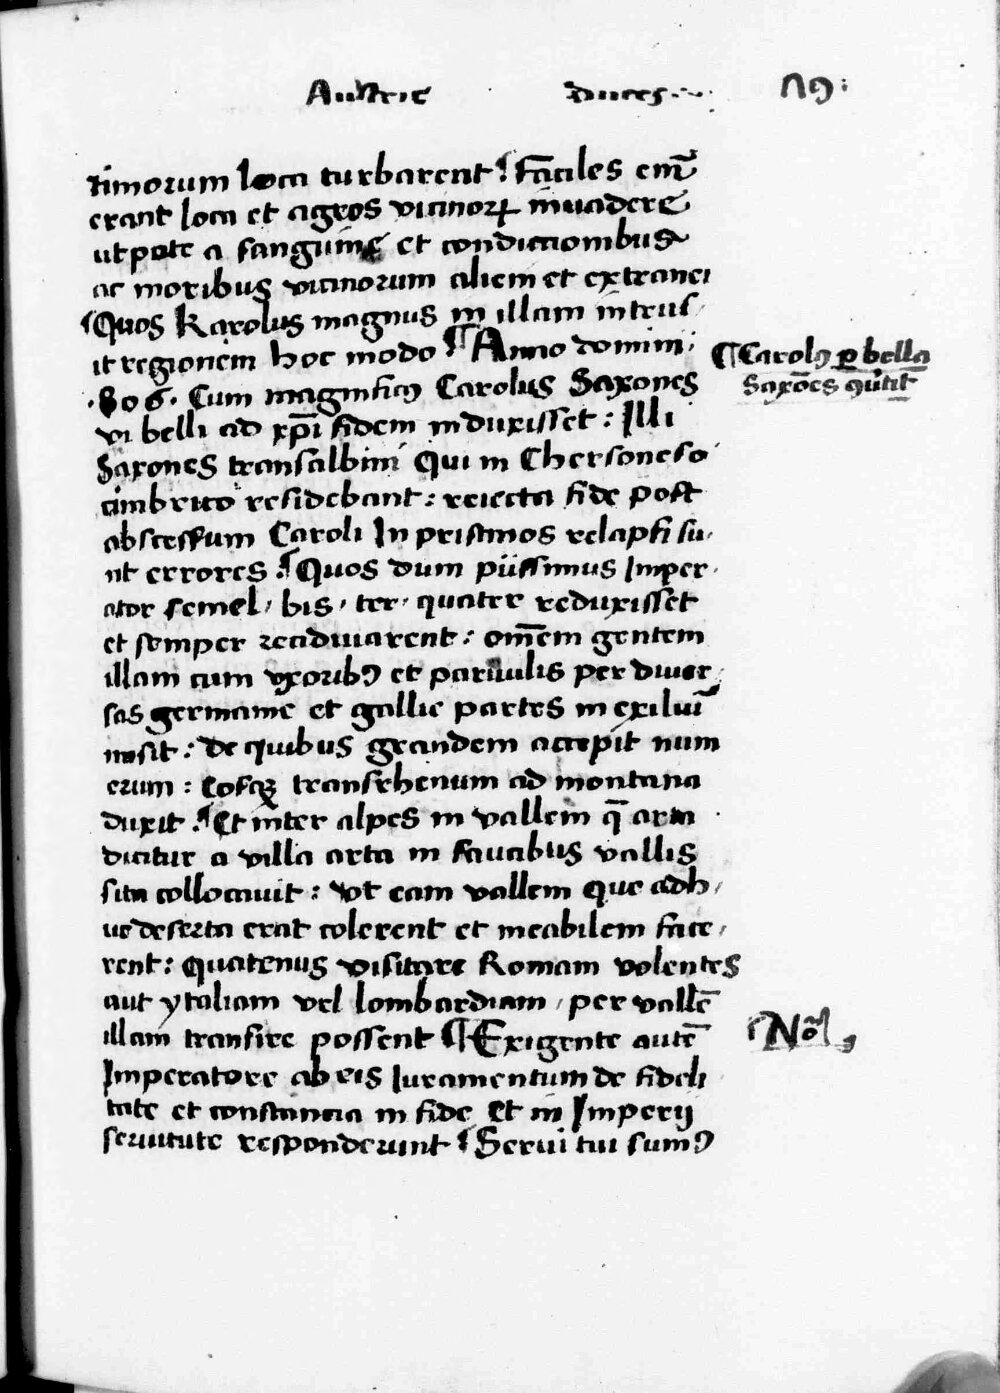 Austrie duces
timorum loca turbarent: Faciles em̃
erant loca et agros vicinoꝝ inuadere
utpote a sanguine et condicionibus
ac moribus vicinorum alieni et extranei
¶Quos Karolus magnus in illam intrus-
it regionem hoc modo ¶Anno domini
·806· Cum magnificꝰ Carolus Saxones
vi belli ad xp̄i fidem induxisset: Illi
Saxones transalbini Qui in Chersoneso
cimbrico residebant: reiecta fide post
abscessum Caroli In pristinos relapsi su-
nt errores. ¶Quos dum piissimus Imper-
ator semel, bis, ter, quater reduxisset
et semper recidiuarent: om̄em gentem
illam cum vxoribꝰ et paruulis per diuer-
sas germanie et gallie partes in exiluī
misit: de quibus grandem accepit num
erum: Eosqꝫ transrhenum ad montana
duxit. ¶Et inter alpes in vallem q̄ arta
dicitur a villa arta in faucibus vallis
sita collocauit: vt eam vallem que adh-
uc deserta erat colerent et meabilem face-
rent: quatenus visitare Romam volentes
aut ytaliam vel lombardiam, per vallē
illam transire possent ¶Exigente autē
Imperatore ab eis Iuramentum de fideli
tate et constancia in fide Et in Imperij
seruitute responderunt ¶Serui tui sumꝰ
¶Carolꝰ ꝑ bella
Saxōes
Nō